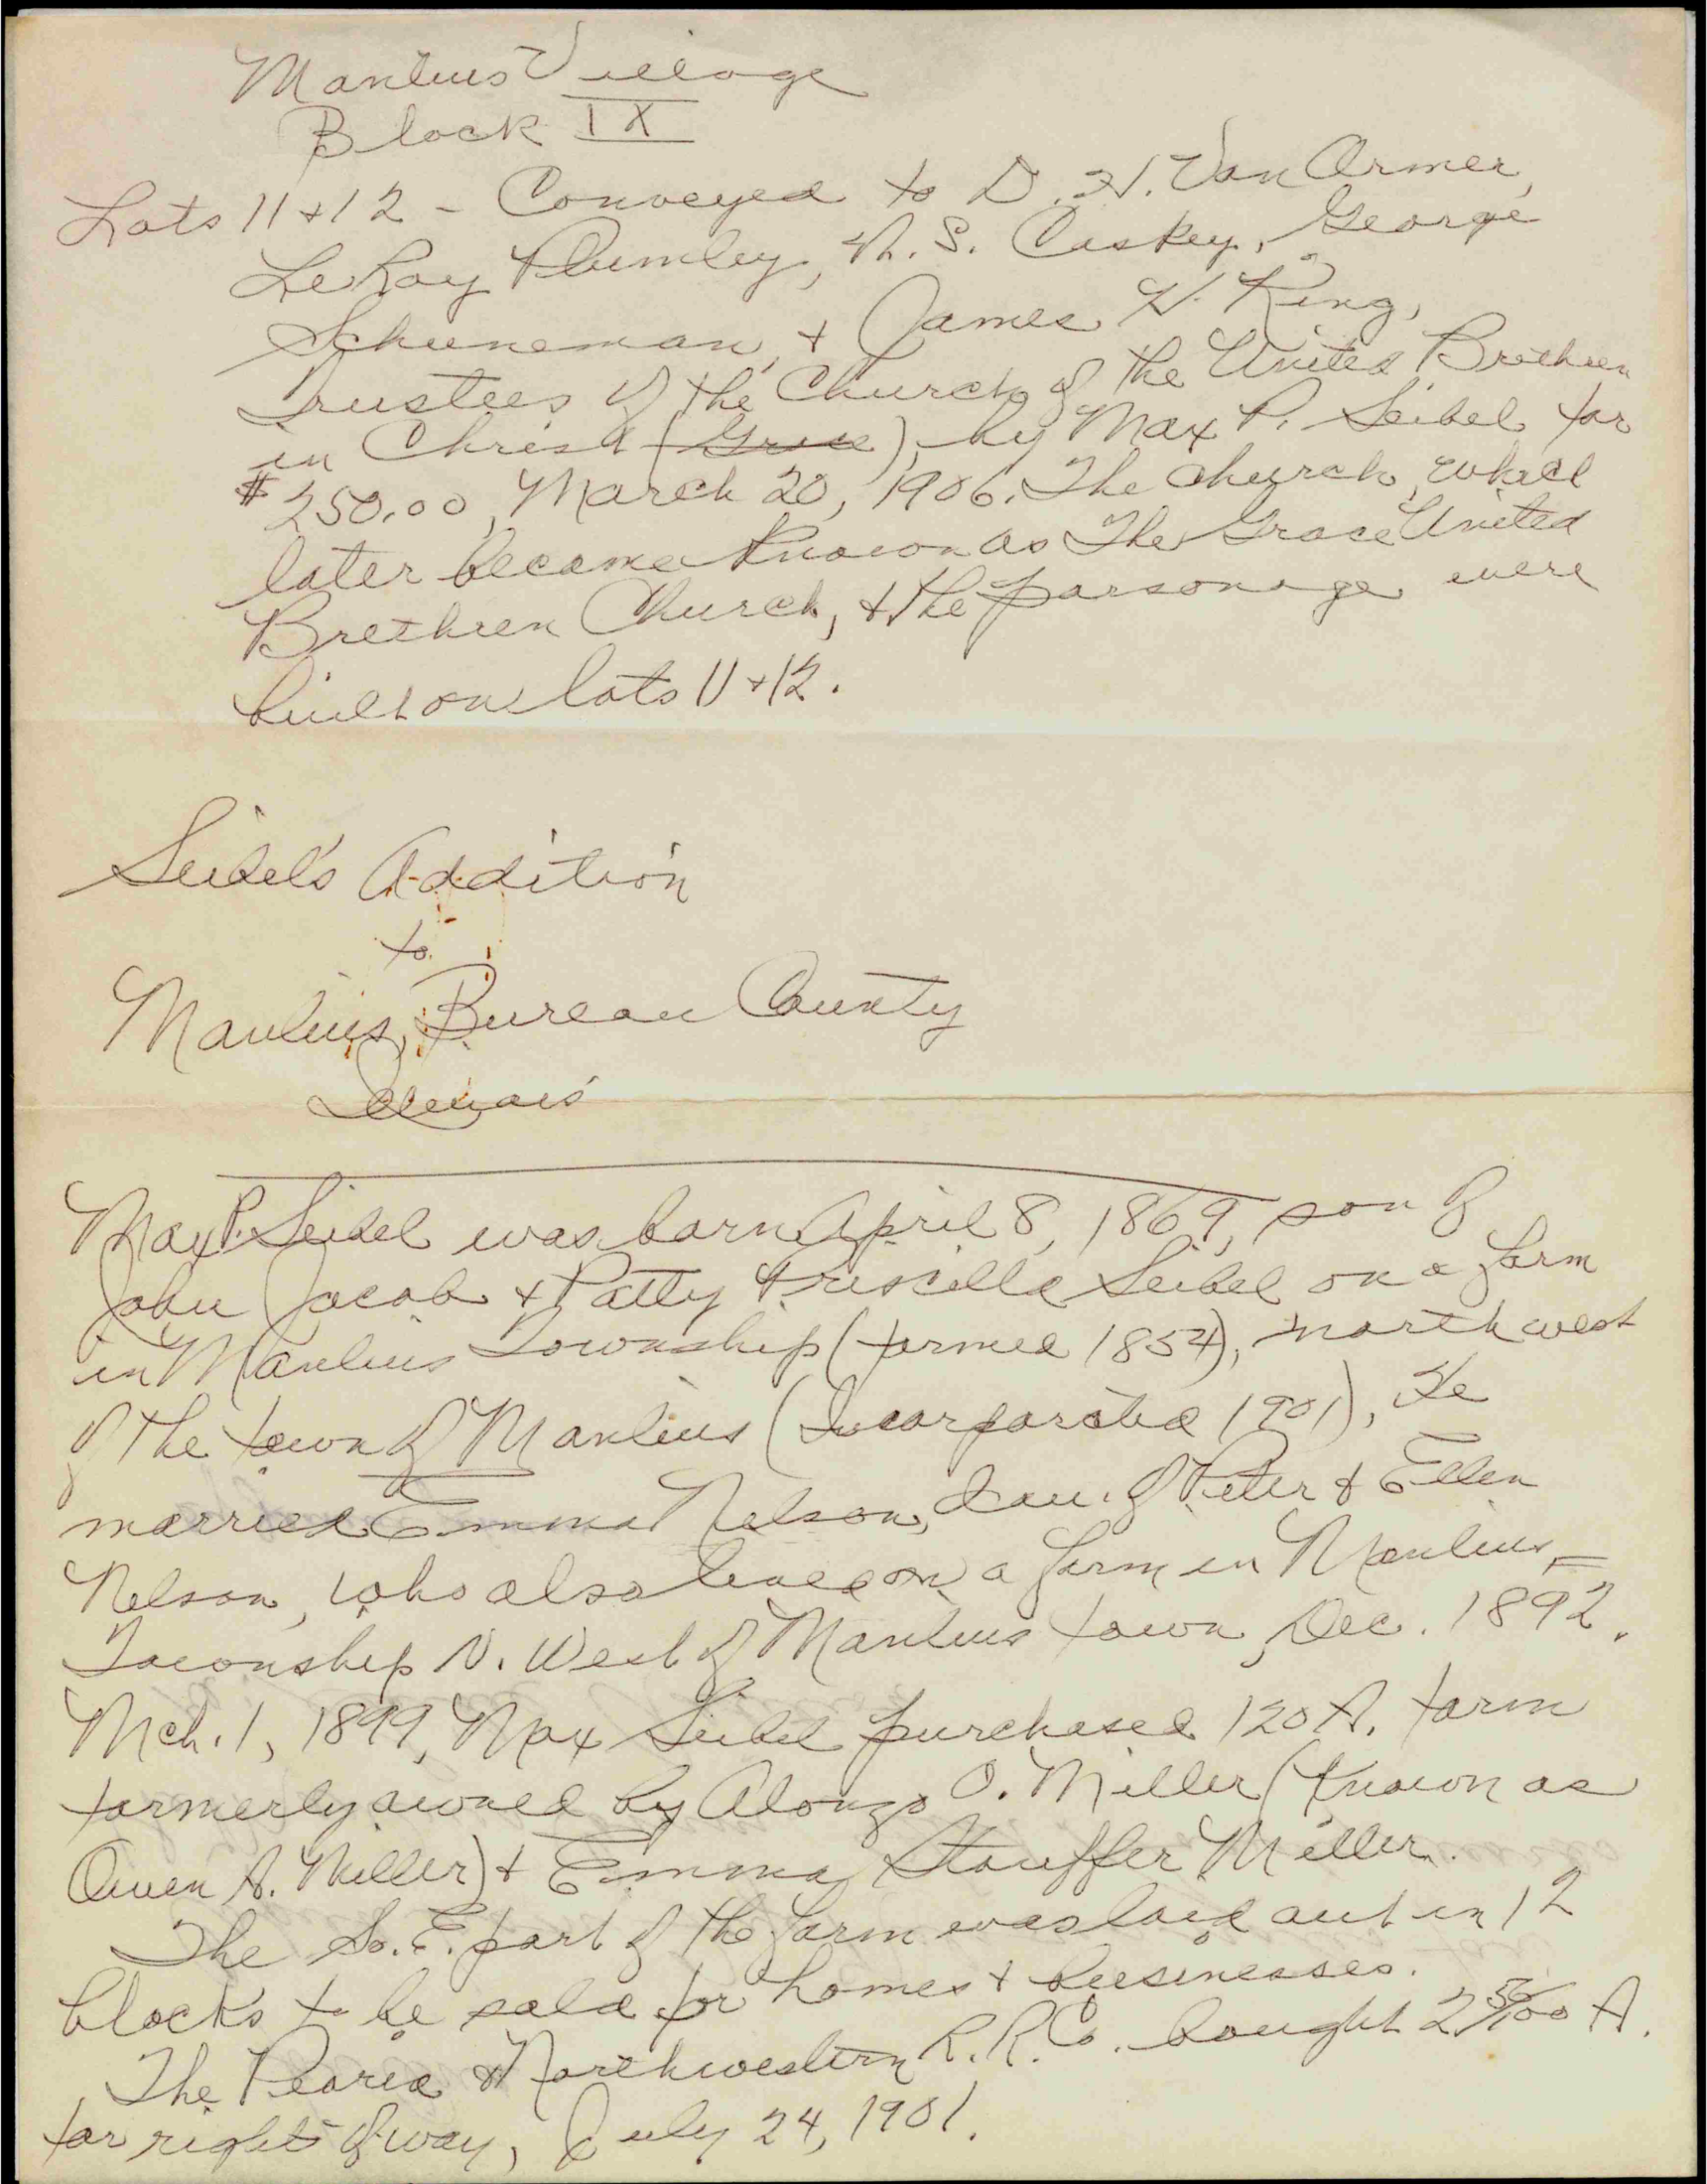 Manlius Village
Block IX
Lots 11 + 12 - Conveyed to D. H. Van Ormer,
LeRoy Plumley, N. S. Caskey, George
Schuneman, + James H. King,
Trustees of the Church of the United Brethren
in Christ (Grace), by Max P. Seibel for
$250.00, March 20, 1906. The church, which
later became known as The Grace United
Brethren Church, + the parsonage were
built on lots 11 + 12.
Seibel's Addition
to
Manlius, Bureau County
Illinois
Max P. Seibel was born April 8, 1869, son of
John Jacob + Patty Priscilla Seibel on a farm
in Manlius Township (formed 1854), northwest
of the town of Manlius (Incorporated 1901), He
married Emma Nelson, dau. of Peter & Ellen
Nelson, who also lived on a farm in Manlius
Township N. West of Manlius town, Dec. 1892.
Mch. 1, 1899, Max Seibel purchased 120 A. farm
formerly owned by Alonzo O. Miller (known as
Owen A. Miller) + Emma Stouffer Miller.
The So. E. part of the farm was laid out in 12
blocks to be sold for homes + businesses.
The Peoria & Northwestern R. R. Co. bought 2 56/100 A.
for rights of way, July 24, 1901.